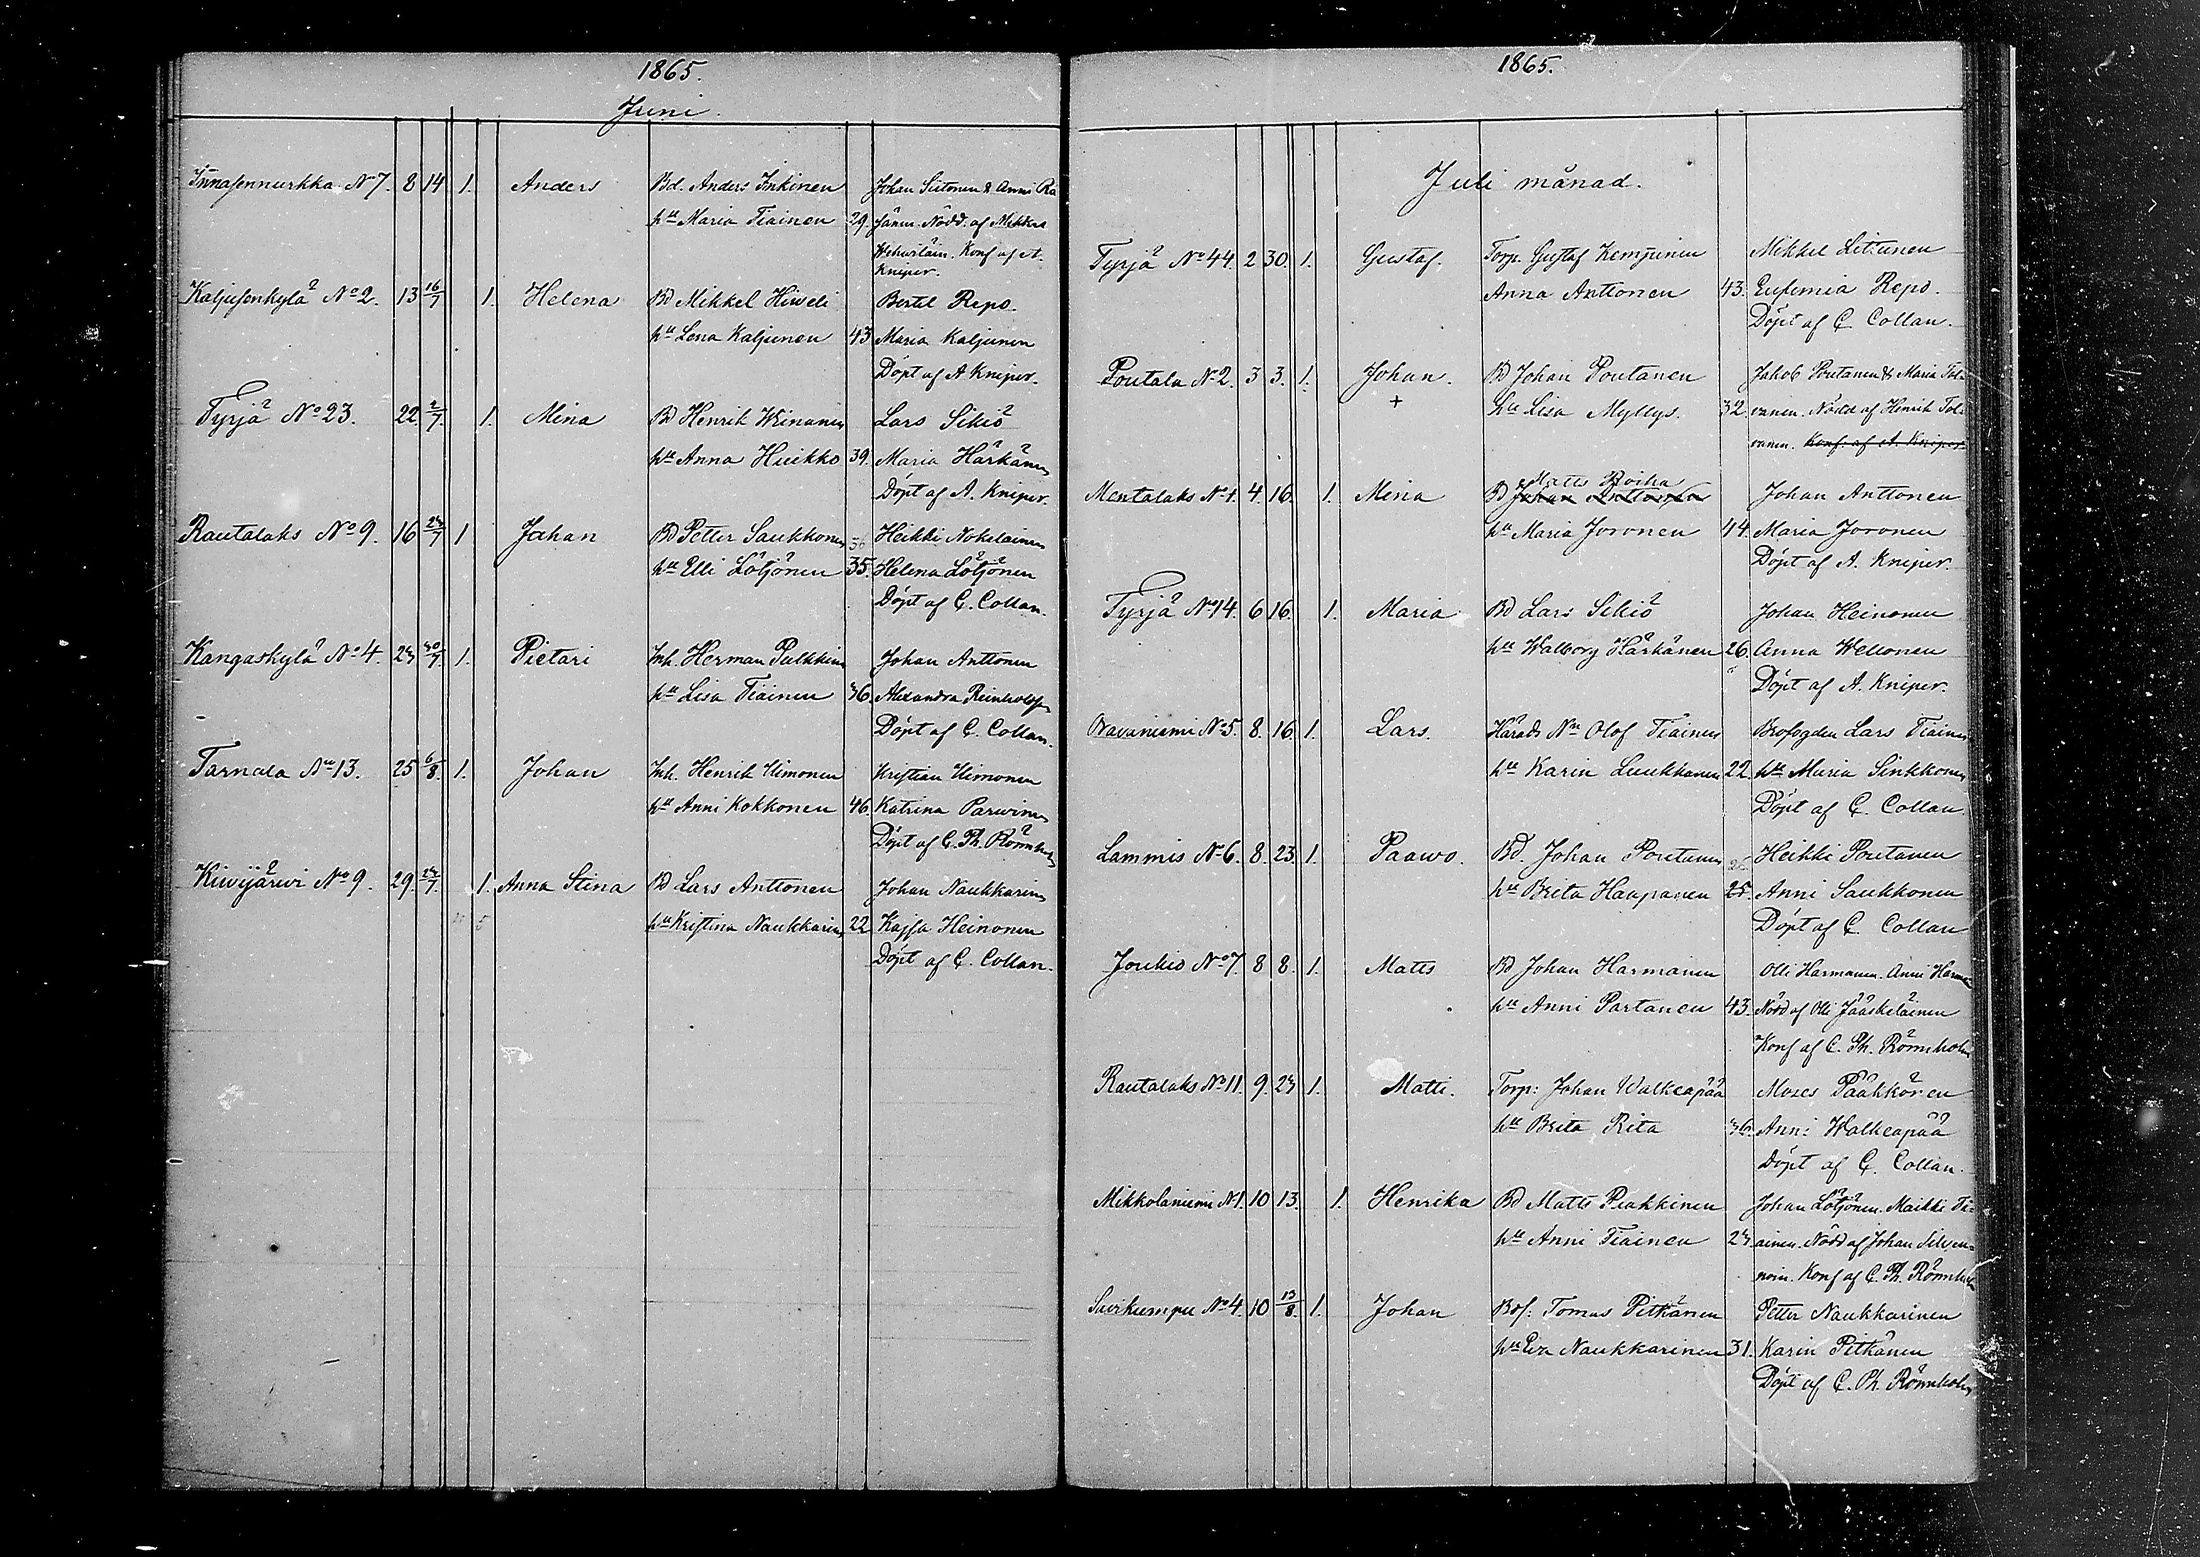 1865.
Juni.
Innasennurkka No 7. 8 14 1. Anders Bd. Anders Inkinen Johan Siitonen & Anni Ra
hu Maria Tiainen 29. jänen Nödd. af Mikko
Wehwiläin. Konf af A.
Kniper.
Kaljusenkylä No 2. 13 16/7 1. Helena Bd Mikkel Hiweli Bertil Repo.
hu Lena Kaljunen 43 Maria Kaljunen
Döpt af A Kniper.
Tyrjä No 23. 22 2/7. 1. Mina Bd Henrik Weinanen Lars Sikiö
hu Anna Huikko 39. Maria Härkänen
Döpt af A. Kniper.
Rautalaks No 9. 16 23/7 1 Johan Bd Petter Saukkonen Heikki Nokelainen
hu Elli Lötjönen 35. Helena Lötjönen
Döpt af C. Collan.
Kangaskylä No 4. 23 30/7. 1. Pietari Inh. Herman Pulkkinen Johan Anttonen
hu Lisa Tiainen 36. Alexandra Reinholdsn
Döpt af C. Collan.
Tarnala No 13. 25 6/8. 1. Johan Inh. Henrik Uimonen Kristian Uimonen
hu Anni Kokkonen 46. Katrina Parwinen
Döpt af C. Ph. Rönnholm
Kiwijärwi No 9. 29. 23/7. 1. Anna Stina Bd Lars Anttonen Johan Naukkarinen
hu Kristina Naukkarinen 22 Kajsa Heinonen
Döpt af C. Collan.
1865.
Juli månad.
Tyrjä No 44. 2 30. 1. Gustaf. Torp. Gustaf Kempinen Mikkel Litunen
Anna Anttonen 43. Eufemia Repo.
Döpt af C Collan.
Poutala No 2. 3 3. 1. Johan. Bd Johan Poutanen Jakob Poutanen & Maria Tol-
+ hu Lisa Myllys. 32. vanen. Nödd af Henrik Tol-
vanen. Konf: af A. Kniper
Matts Roiha
Mentalaks No 1. 4. 16. 1. Mina Bd Johan Anttonen Johan Anttonen
hu Maria Joronen 44. Maria Joronen
Döpt af A. Kniper.
Tyrjä No 14. 6 16. 1. Maria Bd Lars Sikiö Johan Heinonen
hu Walborg Härkänen 26. Anna Wellonen
Döpt af A. Kniper.
Oravaniemi No 5. 8. 16. 1. Lars. Härads Nn Olof Tiainen Brofogden Lars Tiainen
hu Karin Luukkanen 22. hu Maria Sinkkonen
Döpt af C. Collan
Lammis No 6. 8. 23. 1. Paawo. Bd. Johan Poutanen Heikki Poutanen
hu Brita Haapanen 25 Anni Saukkonen
Döpt af C. Collan
Joukio No 7. 8 8. 1. Matts Bd Johan Harmanen Olli Harmanen. Anni Harman
hu Anni Partanen 43. Nödd af Olli Jääskeläinen
Konf af C. Ph. Rönnholm
Rautalaks No 11. 9. 23 1. Matti. Torp: Johan Walkeapää Moses Pääkkönen
hu Brita Rita 36. Anni Walkeapää
Döpt af C. Collan.
Mikkolaniemi N 1. 10 13. 1. Henrika Bd Matts Piakkinen Johan Lötjönen. Maikki Ti-
hu Anni Tiainen 23. ainen. Nödd af Johan Silven-
noin. Konf af C. Ph. Rönnholm
Suikumpu No 4. 10 13/8. 1. Johan Bof: Tomas Pitkänen Petter Naukkarinen
hu Eva Naukkarinen 31. Karin Pitkänen
Döpt af C. Ph. Rönnholm